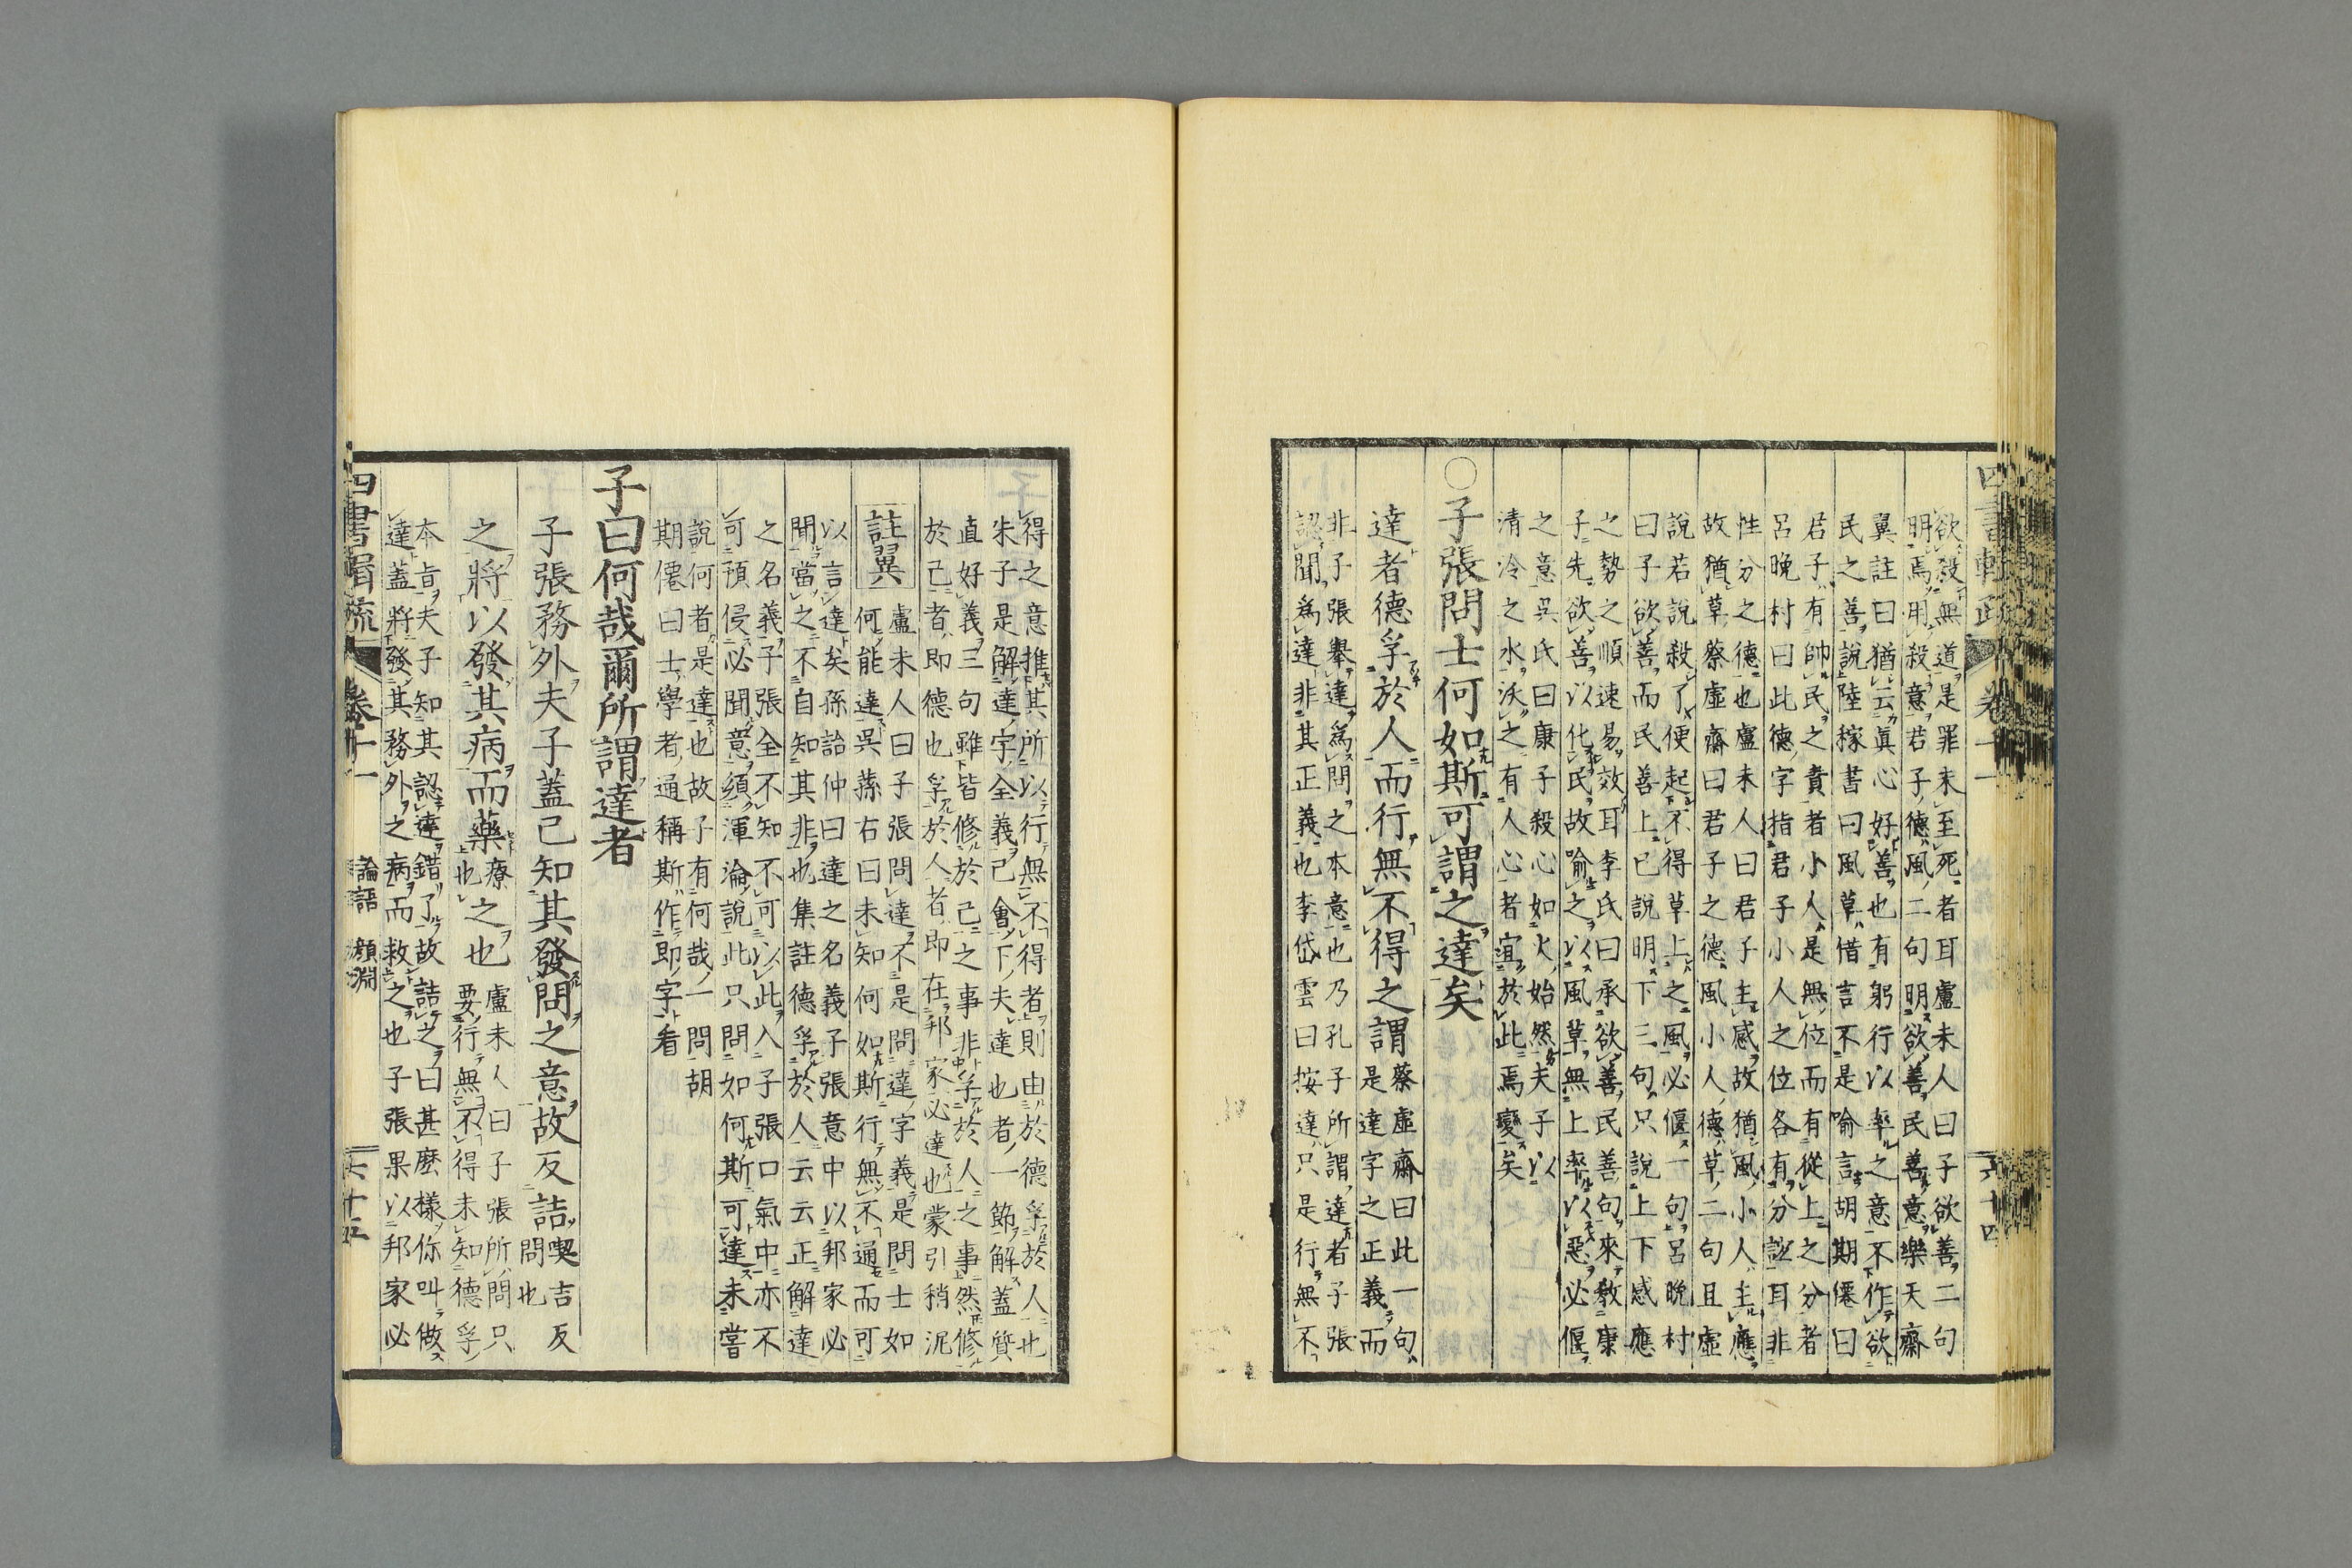 四書輯疏 卷十一 六十四
欲殺無道是罪未至死者耳盧未人曰子欲善二句
明焉用殺意若子德風二句明欲善民善意樂天齋
翼註曰猶云眞心好善也有躬行以率之意不作欲
民之善說陸稼書曰風草借言不是喻言胡期僊曰
君子有帥民之責者小人是無位而有從上之分者
呂晚村曰此德字指君子小人之位各有分誼耳非
性分之德也盧未人曰君子主感故猶風小人主應
故猶草蔡虛齋曰君子之德風小人德草二句且虛
說若說殺了便起不得草上之風必偃一句呂晚村
曰子欲善而民善上已說明下三句只說上下感應
之勢之順速易效耳李氏曰承欲善民善句來教康
子先欲善以化民故喻之以風草無上率以惡必偃
之意吳氏曰康子殺心如火始然夫子以
清冷之水沃之有人心者宜於此焉變矣
○子張問士何如斯可謂之達矣
達者德孚於人而行無不得之謂蔡虛齋曰此一句
是達字之正義而
非子張舉達爲問之本意也乃孔子所謂達者子張
認聞爲達非其正義也李岱雲曰按達只是行無不
得之意推其所以行無不得者則由於德孚於人也
朱子是解達字全義己會下夫達也者一節解蓋質
直好義三句雖皆修於己之事非孚於人之事然修
於己者即德也孚於人者即在邦家必達也蒙引稍泥
註翼 盧未人曰子張問達不是問達字義是問士如
何能達吳蓀右曰未知何如斯行無不通而可
以言達矣孫詒仲曰達之名義子張意中以邦家必
聞當之不自知其非也集註德孚於人云云正解達
之名義子張全不知不可以此入子張口氣中亦不
可預侵必聞意須渾淪說此只問如何斯可達未嘗
說何者是達也故子有何哉一問胡
期僊曰士學者通稱斯作即字看
子曰何哉爾所謂達者
子張務外夫子蓋已知其發問之意故反詰喫吉反
問也
之將以發其病而藥療也之也盧未人曰子張所問只
要行無不得未知德孚
本旨夫子知其認達錯了故詰之曰甚麽樣你叫做
達蓋將發其務外之病而救之也子張果以邦家必
四書輯疏 卷十一 論語 顏淵 六十五